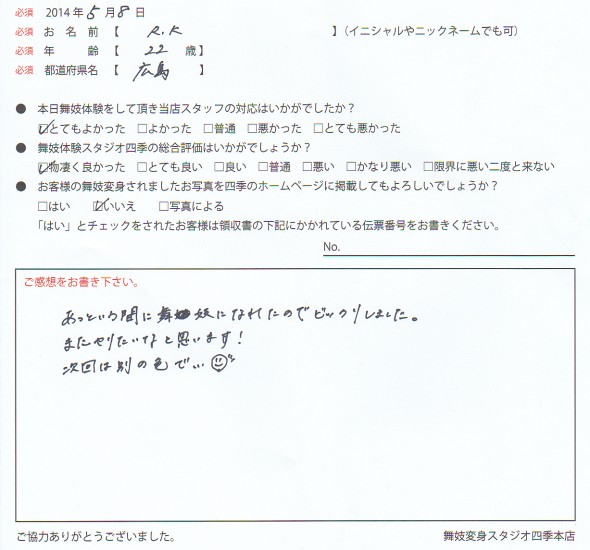 必須 2014年 5 月 8 日
必須 お 名 前 【 R.K 】(イニシャルやニックネームでも可)
必須 年 齢 【 22 歳】
必須 都道府県名 【 広島 】
● 本日舞妓体験をして頂き当店スタッフの対応はいかがでしたか?
☑とてもよかった □よかった □普通 □悪かった □とても悪かった
● 舞妓体験スタジオ四季の総合評価はいかがでしょうか?
☑物凄く良かった □とても良い □良い □普通 □悪い □かなり悪い □限界に悪い二度と来ない
● お客様の舞妓変身されましたお写真を四季のホームページに掲載してもよろしいでしょうか?
□はい ☑いいえ □写真による
「はい」とチェックをされたお客様は領収書の下記にかかれている伝票番号をお書きください。
No.
ご感想をお書き下さい。
あっという間に舞妓になれたのでビックリしました。
またやりたいなと思います!
次回は別の色で…
ご協力ありがとうございました。
舞妓変身スタジオ四季本店